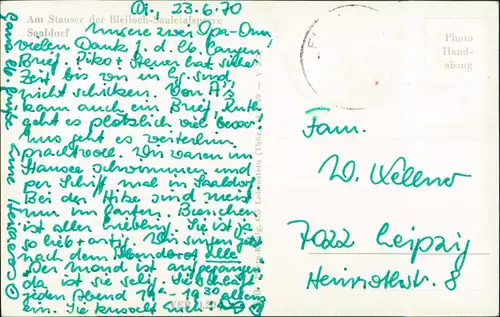 Di., 23.6.70
Am Stausee der Bleiloch-Saaletalsperre
Saaldorf
Unsere zwei Opa-Oma
vielen Dank f. d. lb. langen
Brief. Piko + Steuer hat sicher
Zeit bis von in L. sind
nicht schicken. Von A's
kam auch ein Brief. Ruth
geht es plötzlich viel besser
Uns geht es weiterhin
prachtvoll. Wir waren im
Stausee schwimmen und
per Schiff mal in Saaldorf
Bei der Hitze sind wir meist
nur im Garten. Bienchen
ist aller Liebling. Sie ist ja
so lieb + artig. Wir singen jetzt
nach dem Abendbrot alle
"Der Mond ist aufgegangen"
da ist sie selig. Sie schläft
jeden Abend 19 - 19 30 allein
ein. Sie knuselt Euch!
Ganz lb. Grüße Eure
Photo
Hand-
abzug
Fam.
W. Wellner
7022 Leipzig
Heinrothstr. 8